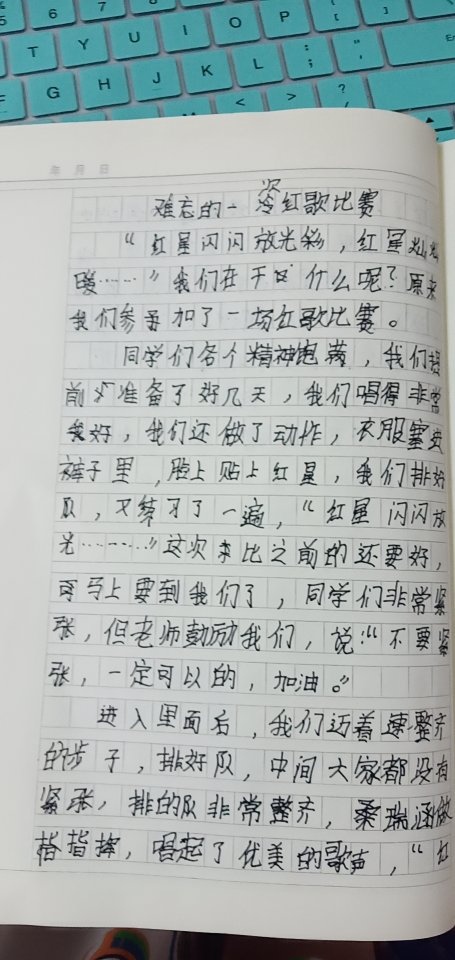 5 6 7 8 9 0
T Y U I O P [ ]
F G H J K L ; "
M < > ?
年 月 日
难忘的一次红歌比赛
“红星闪闪放光彩，红星灿灿
暖……”我们在干什么呢？原来
我们参加了一场红歌比赛。
同学们各个精神饱满，我们提
前准备了好几天，我们唱得非常
好，我们还做了动作，衣服塞进
裤子里，脸上贴上红星，我们排好
队，又练习了一遍，“红星闪闪放
光………”这次比之前的还要好，
可马上要到我们了，同学们非常紧
张，但老师鼓励我们，说：“不要紧
张，一定可以的，加油。”
进入里面后，我们迈着整齐
的步子，排好队，中间大家都没有
紧张，排的队非常整齐，桑瑞涵做
指挥，唱起了优美的歌声，“红